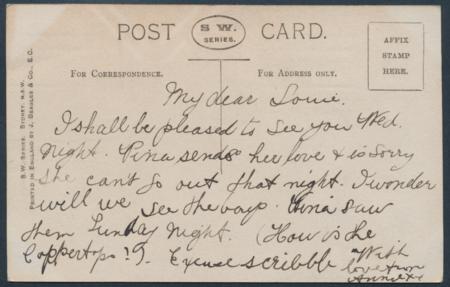 POST CARD.
S W.
SERIES.
AFFIX
STAMP
HERE.
FOR CORRESPONDENCE.
FOR ADDRESS ONLY.
S.W. SERIES. SYDNEY, N.S.W.
PRINTED IN ENGLAND BY J. BEAGLES & CO., E.C.
My dear Louie.
I shall be pleased to see you Wed.
Night. sends her love & is sorry
she can't go out that night. I wonder
will we see the boys. saw
them Sunday Night. (How is the
Coppertops!?). Excuse scribble
With
love from